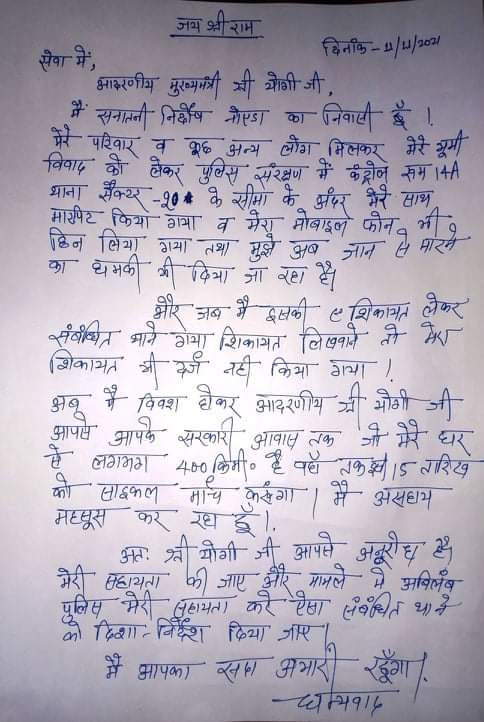 जय श्री राम
दिनांक - 11/11/2021
सेवा में,
आदरणीय मुख्यमंत्री श्री योगी जी,
मैं सनातनी निर्दोष नोएडा का निवासी हूँ !
मेरे परिवार व कुछ अन्य लोग मिलकर मेरे भूमी
विवाद को लेकर पुलिस संरक्षण में कंट्रोल रूम 14A
थाना सैक्टर - 20 के सीमा के अंदर मेरे साथ
मारपिट किया गया व मेरा मोबाइल फोन भी
छिन लिया गया तथा मुझे अब जान से मारने
का धमकी भी दिया जा रहा है।
और जब मैं इसकी शिकायत लेकर
संबंधित थाने गया शिकायत लिखवाने तो मेरा
शिकायत भी दर्ज नही किया गया !
अब मैं विवश होकर आदरणीय श्री योगी जी
आपसे आपके सरकारी आवास तक जो मेरे घर
से लगभग 400 किमी॰ है वहाँ तक 15 तारिख
को साइकल मार्च करूंगा । मैं असहाय
महसूस कर रहा हूँ ।
अतः श्री योगी जी आपसे अनुरोध है।
मेरी सहायता की जाए और मामले में अविलंब
पुलिस मेरी सहायता करे ऐसा संबंधित थाने
को दिशा - निर्देश दिया जाए।
मैं आपका सदा अभारी रहूँगा !
धन्यवाद